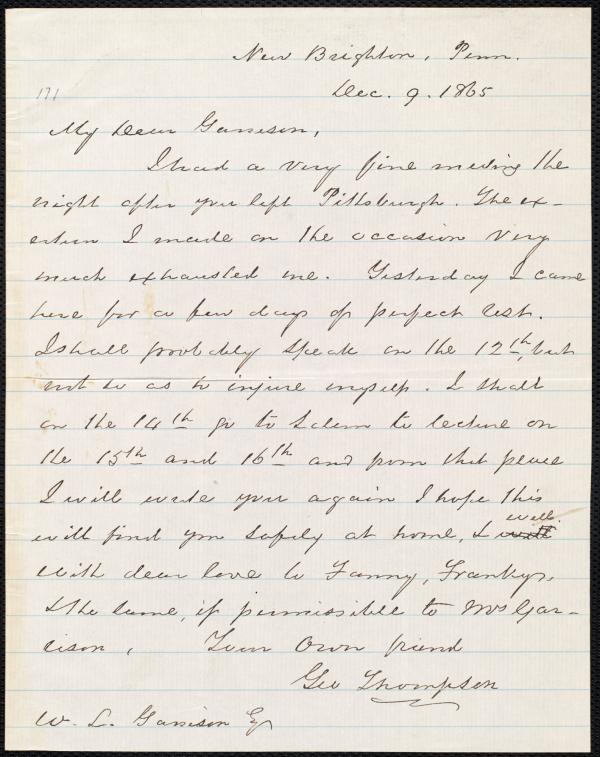 New Brighton, Penn.
171
Dec. 9. 1865
My Dear Garrison,
I had a very fine meeting the
night after you left Pittsburgh. The ex-
ertion I made on the occasion very
much exhausted me. Yesterday I came
here for a few days of perfect rest.
I shall probably speak on the 12th, but
not so as to injure myself. I shall
on the 14th go to Salem to lecture on
the 15th and 16th and from that place
I will write you again I hope this
will find you safely at home, & well.
With dear love to Fanny, Franky,
& the same, if permissible to Mrs Gar-
rison, Your Own friend
Geo Thompson
W. L. Garrison Esq